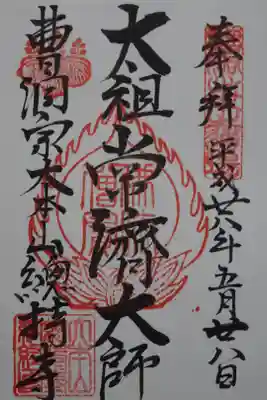 奉拝 平成廿六年五月廿八日
太祖常濟大師
曹洞宗大本山總持寺